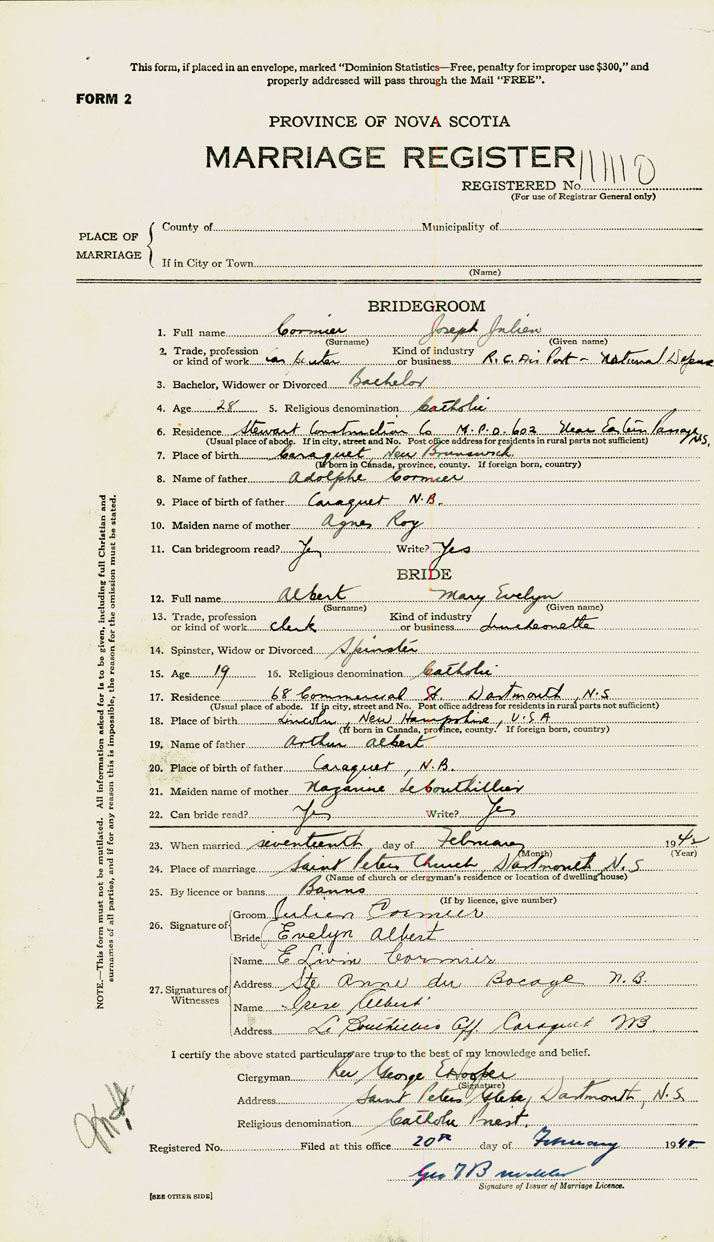 This form, if placed in an envelope, marked “Dominion Statistics—Free, penalty for improper use $300,” and
properly addressed will pass through the Mail “FREE”.
FORM 2
PROVINCE OF NOVA SCOTIA
MARRIAGE REGISTER
REGISTERED No.
(For use of Registrar General only)
PLACE OF MARRIAGE
County of Municipality of
If in City or Town
(Name)
BRIDEGROOM
1. Full name Cormier Joseph Julien
(Surname) (Given name)
2. Trade, profession or kind of work carpenter Kind of industry or business R.C. Air Port - National Defense
3. Bachelor, Widower or Divorced Bachelor
4. Age 28 5. Religious denomination Catholic
6. Residence Stewart Construction Co M.P.O. 602 Near Eastern Passage N.S.
(Usual place of abode. If in city, street and No. Post office address for residents in rural parts not sufficient)
7. Place of birth Caraquet, New Brunswick
(If born in Canada, province, county. If foreign born, country)
8. Name of father Adolphe Cormier
9. Place of birth of father Caraquet N.B.
10. Maiden name of mother Agnes Roy
11. Can bridegroom read? Yes Write? Yes
BRIDE
12. Full name Albert Mary Evelyn
(Surname) (Given name)
13. Trade, profession or kind of work clerk Kind of industry or business Luncheonette
14. Spinster, Widow or Divorced Spinster
15. Age 19 16. Religious denomination Catholic
17. Residence 68 Commercial St. Dartmouth, N.S
(Usual place of abode. If in city, street and No. Post office address for residents in rural parts not sufficient)
18. Place of birth Lincoln, New Hampshire, U.S.A
(If born in Canada, province, county. If foreign born, country)
19. Name of father Arthur Albert
20. Place of birth of father Caraquet, N.B.
21. Maiden name of mother Nazarine LeBouthillier
22. Can bride read? Yes Write? Yes
23. When married seventeenth day of February 1942
(Month) (Year)
24. Place of marriage Saint Peters Church, Dartmouth, N.S
(Name of church or clergyman's residence or location of dwelling house)
25. By licence or banns Banns
(If by licence, give number)
26. Signature of
Groom Julien Cormier
Bride Evelyn Albert
27. Signatures of Witnesses
Name E Livin Cormier
Address Ste Anne du Bocage N.B.
Name Albert
Address Caraquet NB.
I certify the above stated particulars are true to the best of my knowledge and belief.
Clergyman Rev George E Hooper
(Signature)
Address Saint Peters Glebe, Dartmouth, N.S.
Religious denomination Catholic Priest.
Registered No. Filed at this office 20th day of February 1942
Geo
Signature of Issuer of Marriage Licence.
[SEE OTHER SIDE]
NOTE.—This form must not be mutilated. All information asked for is to be given, including full Christian and
surnames of all parties, and if for any reason this is impossible, the reason for the omission must be stated.